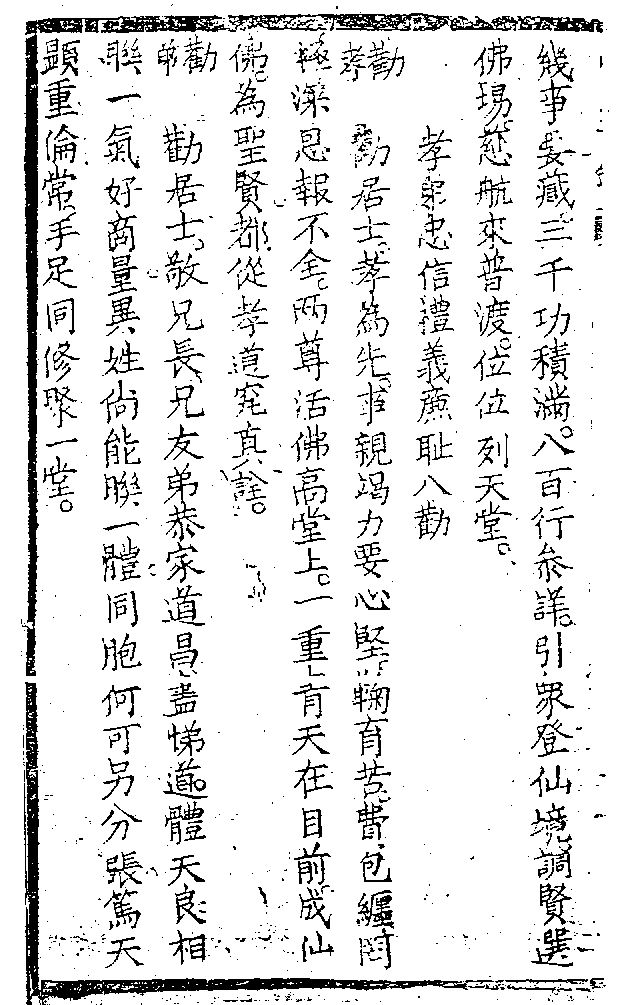 幾事要藏。三千功積滿。八百行參詳。引眾登仙境。調賢選
佛場。慈航來普渡。位位列天堂。
孝弟忠信禮義廉恥八勸
勸孝
勸居士。孝為先。事親竭力要心堅。鞠育苦費包纏罔
極深恩報不全。兩尊活佛高堂上。一重有天在目前成仙
佛。為聖賢都從孝道究真詮。
勸弟
勸居士。敬兄長兄友弟恭家道昌盡悌道。體天良相
聯一氣好商量異姓尚能聯一體同胞何可另分張篤天
顯重倫常手足同修聚一堂。